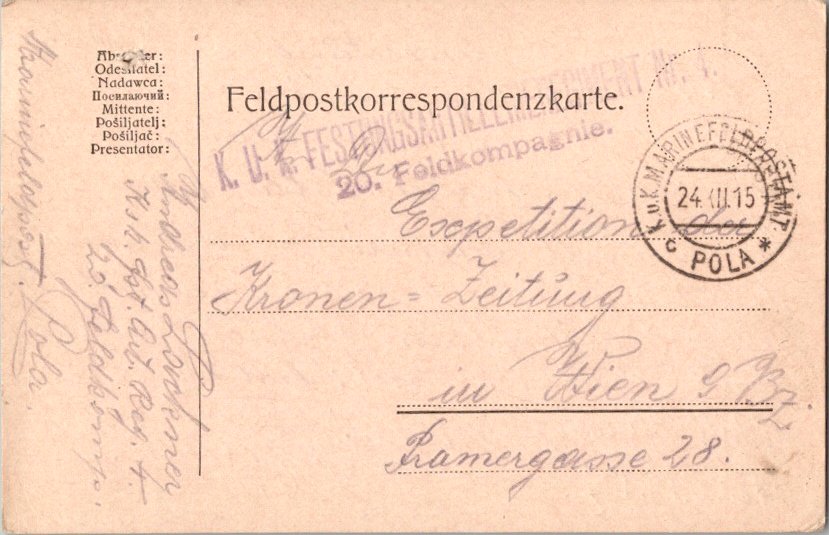 Absender:
Odesílatel:
Nadawca:
Посилаючий:
Mittente:
Pošiljatelj:
Pošiljač:
Presentator:
Feldpostkorrespondenzkarte.
K. U. K. FESTUNGSARTILLERIEREGIMENT Nr. 4.
20. Feldkompagnie.
K. u. K. MARINEFELDPOSTAMT.
24.XII.15
c POLA *
An die
Expetition der
Kronen=Zeitung
in Wien 9 Bz.
Pramergasse 28.
Andreas
K. u. k. Fst. Art. Reg. 4.
20. Feldkomp.
Marinefeldpost. Pola.